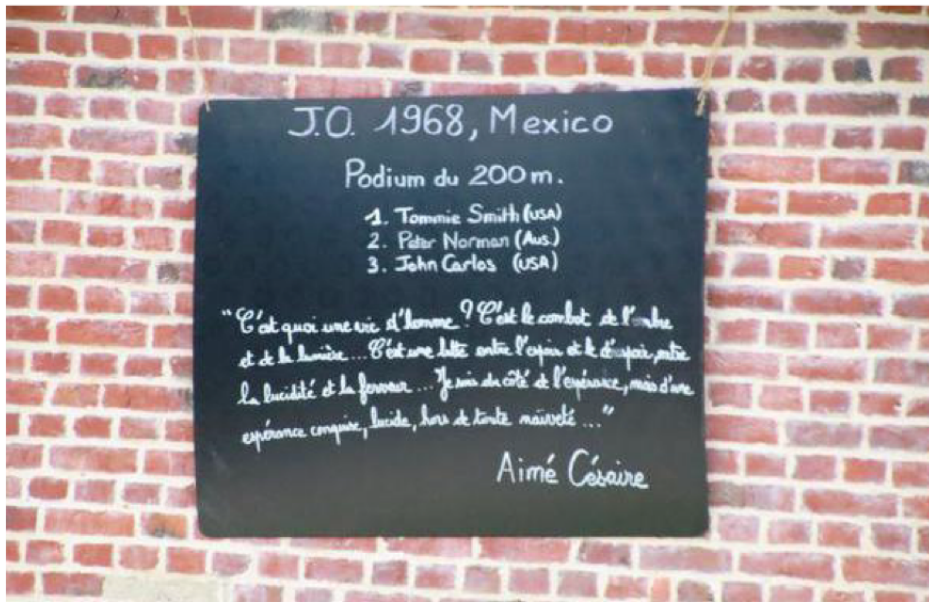 J.O. 1968, Mexico
Podium du 200 m.
1. Tommie Smith (USA)
2. Peter Norman (Aus.)
3. John Carlos (USA)
"C'est quoi une vie d'homme ? C'est le combat de l'ombre
et de la lumière... C'est une lutte entre l'espoir et le désespoir, entre
la lucidité et la ferveur... Je suis du côté de l'espérance, mais d'une
espérance conquise, lucide, hors de toute naïveté..."
Aimé Césaire